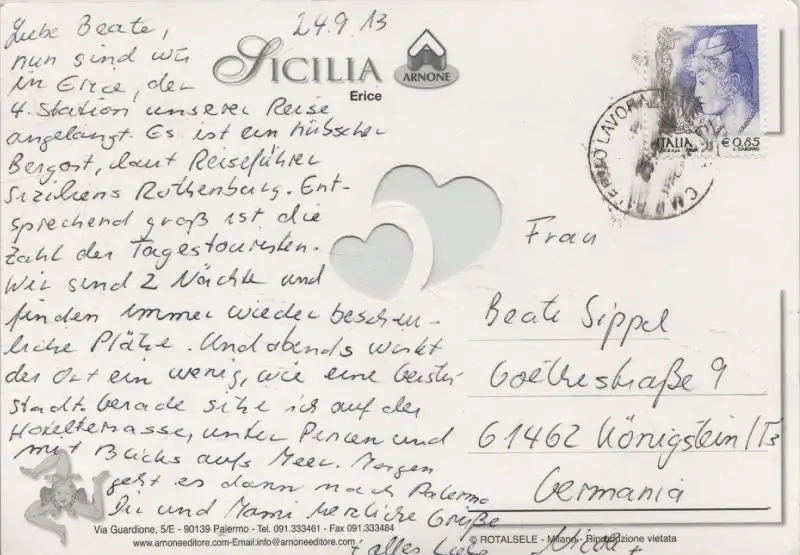 24.9.13
Liebe Beate,
nun sind wir
in Erice, der
4. Station unserer Reise
angelangt. Es ist ein hübscher
Bergort, laut Reiseführer
Siziliens Rothenburg. Ent-
sprechend groß ist die
Zahl der Tagestouristen.
Wir sind 2 Nächte und
finden immer wieder beschau-
liche Plätze. Und abends wirkt
der Ort ein wenig, wie eine Geister-
stadt. Gerade sitze ich auf der
Hotelterrasse, unter Pinien und
mit Blick aufs Meer. Morgen
geht es dann nach Palermo
Dir und Mami herzliche Grüße
+ alles Liebe Nicole +
SICILIA
ARNONE
Erice
ITALIA
€ 0,85
LAVORA
C.M.P.
Frau
Beate Sippel
Goethestraße 9
61462 Königstein/Ts
Germania
Via Guardione, 5/E - 90139 Palermo - Tel. 091.333461 - Fax 091.333484
www.arnoneeditore.com-Email:info@arnoneeditore.com
© ROTALSELE - Milano - Riproduzione vietata